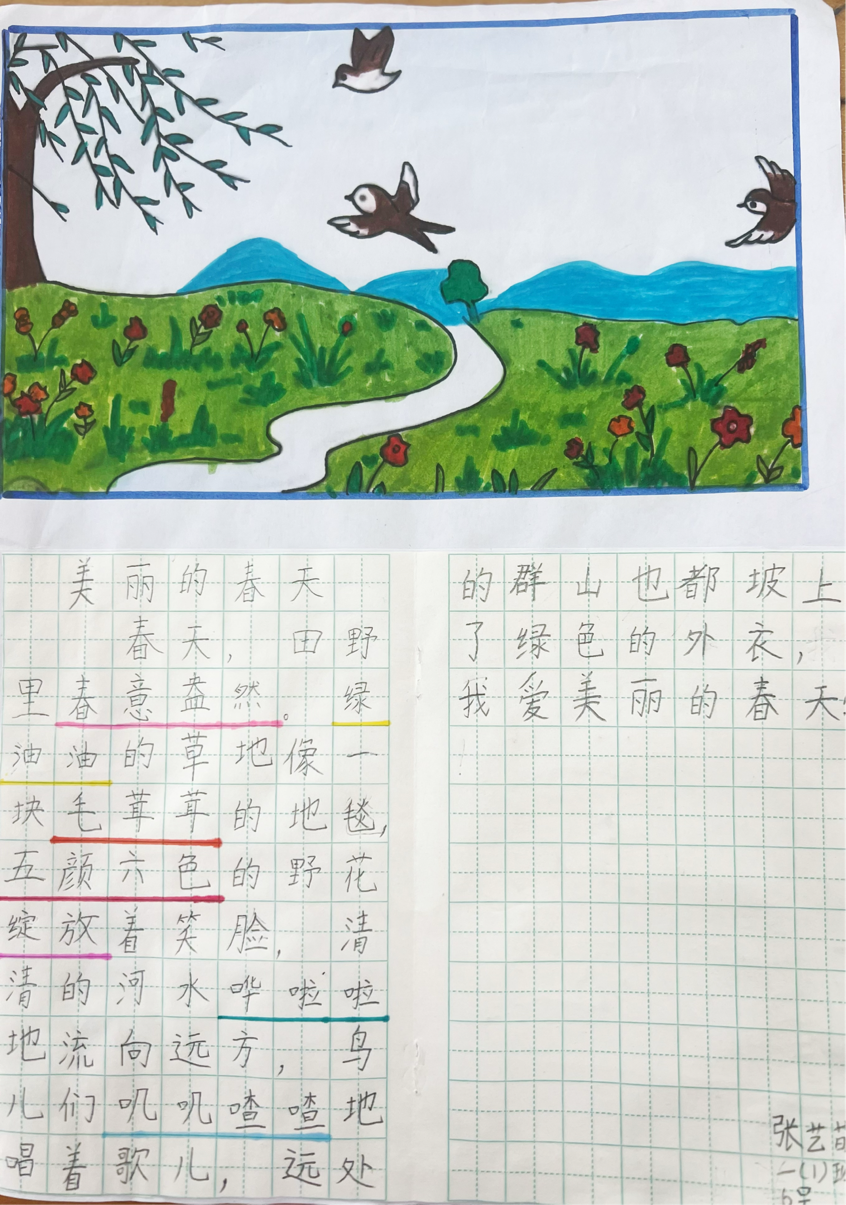 美丽的春天
春天，田野
里春意盎然。绿
油油的草地像一
块毛茸茸的地毯，
五颜六色的野花
绽放着笑脸，清
清的河水哗啦啦
地流向远方，鸟
儿们叽叽喳喳地
唱着歌儿，远处
的群山也都坡上
了绿色的外衣，
我爱美丽的春天
张艺
一(1)班
6号